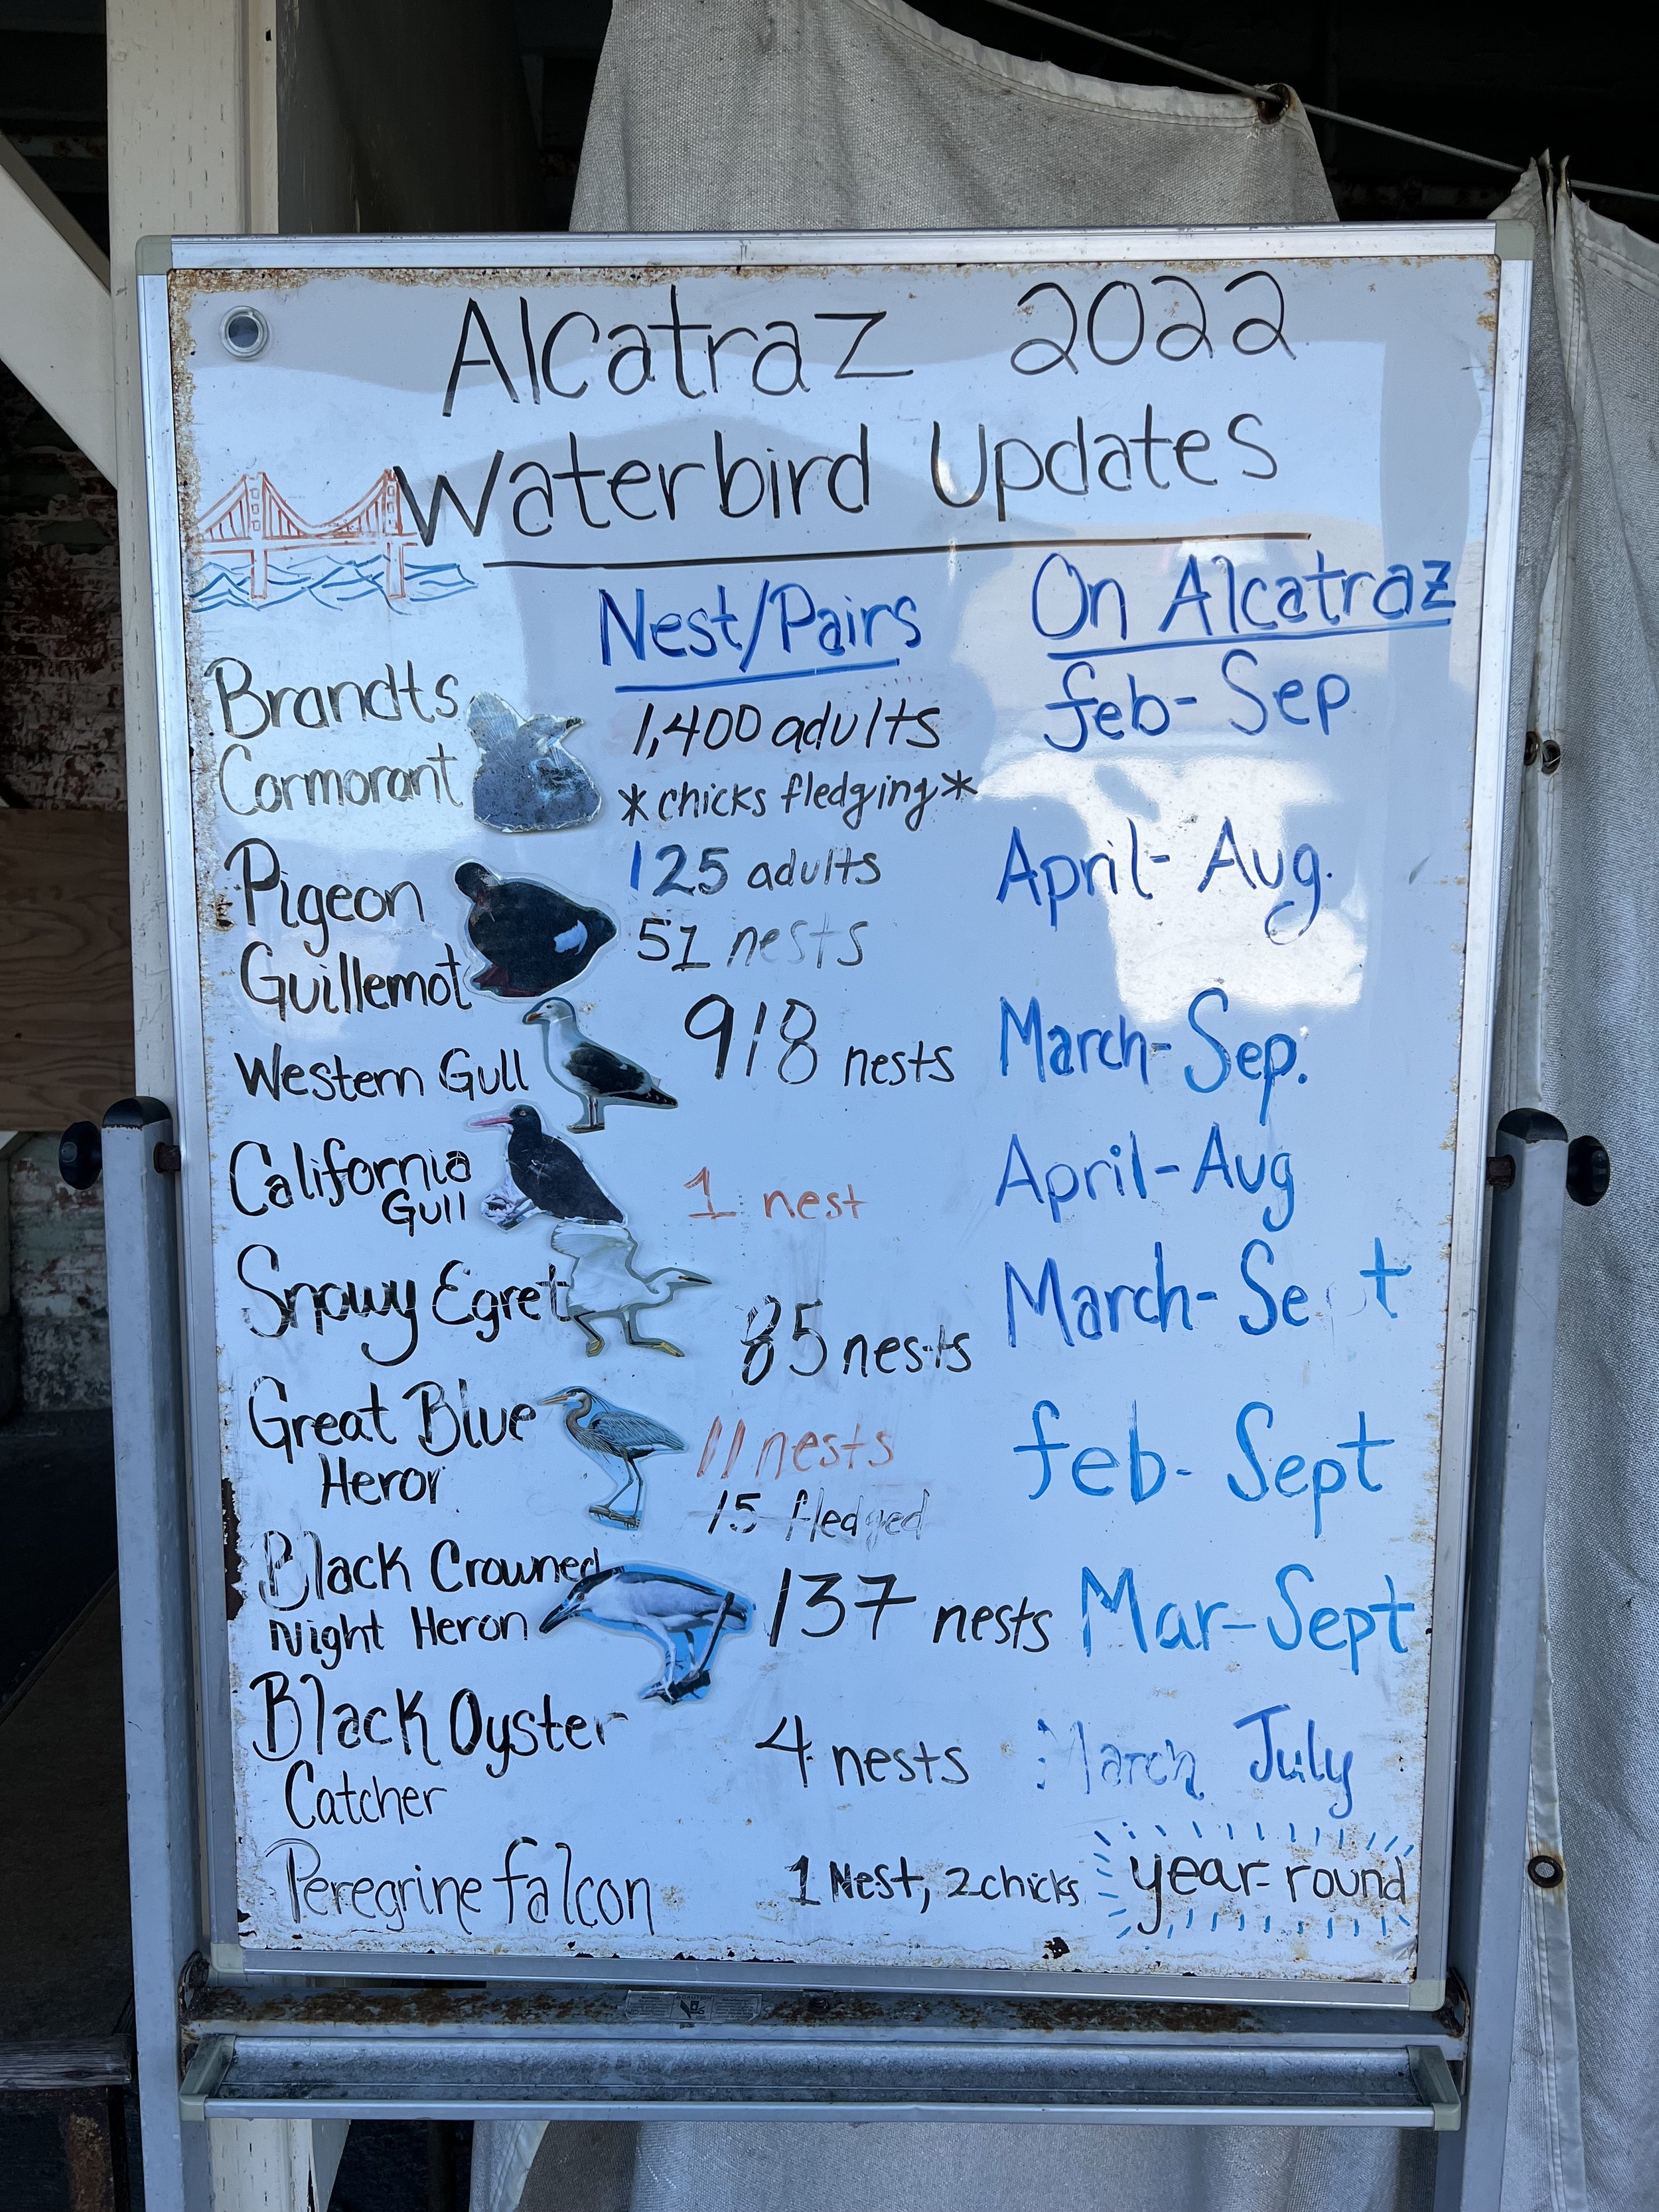 Alcatraz 2022
Waterbird Updates
Nest/Pairs On Alcatraz
Brandts 1,400 adults feb- Sep
Cormorant *chicks fledging*
Pigeon 125 adults April- Aug.
Guillemot 51 nests
Western Gull 918 nests March- Sep.
California 1 nest April- Aug
Gull
Snowy Egret 85 nests March- Se t
Great Blue 11 nests feb- Sept
Heron 15 fledged
Black Crowned 137 nests Mar-Sept
Night Heron
Black Oyster 4 nests March July
Catcher
Peregrine falcon 1 Nest, 2 chicks year-round